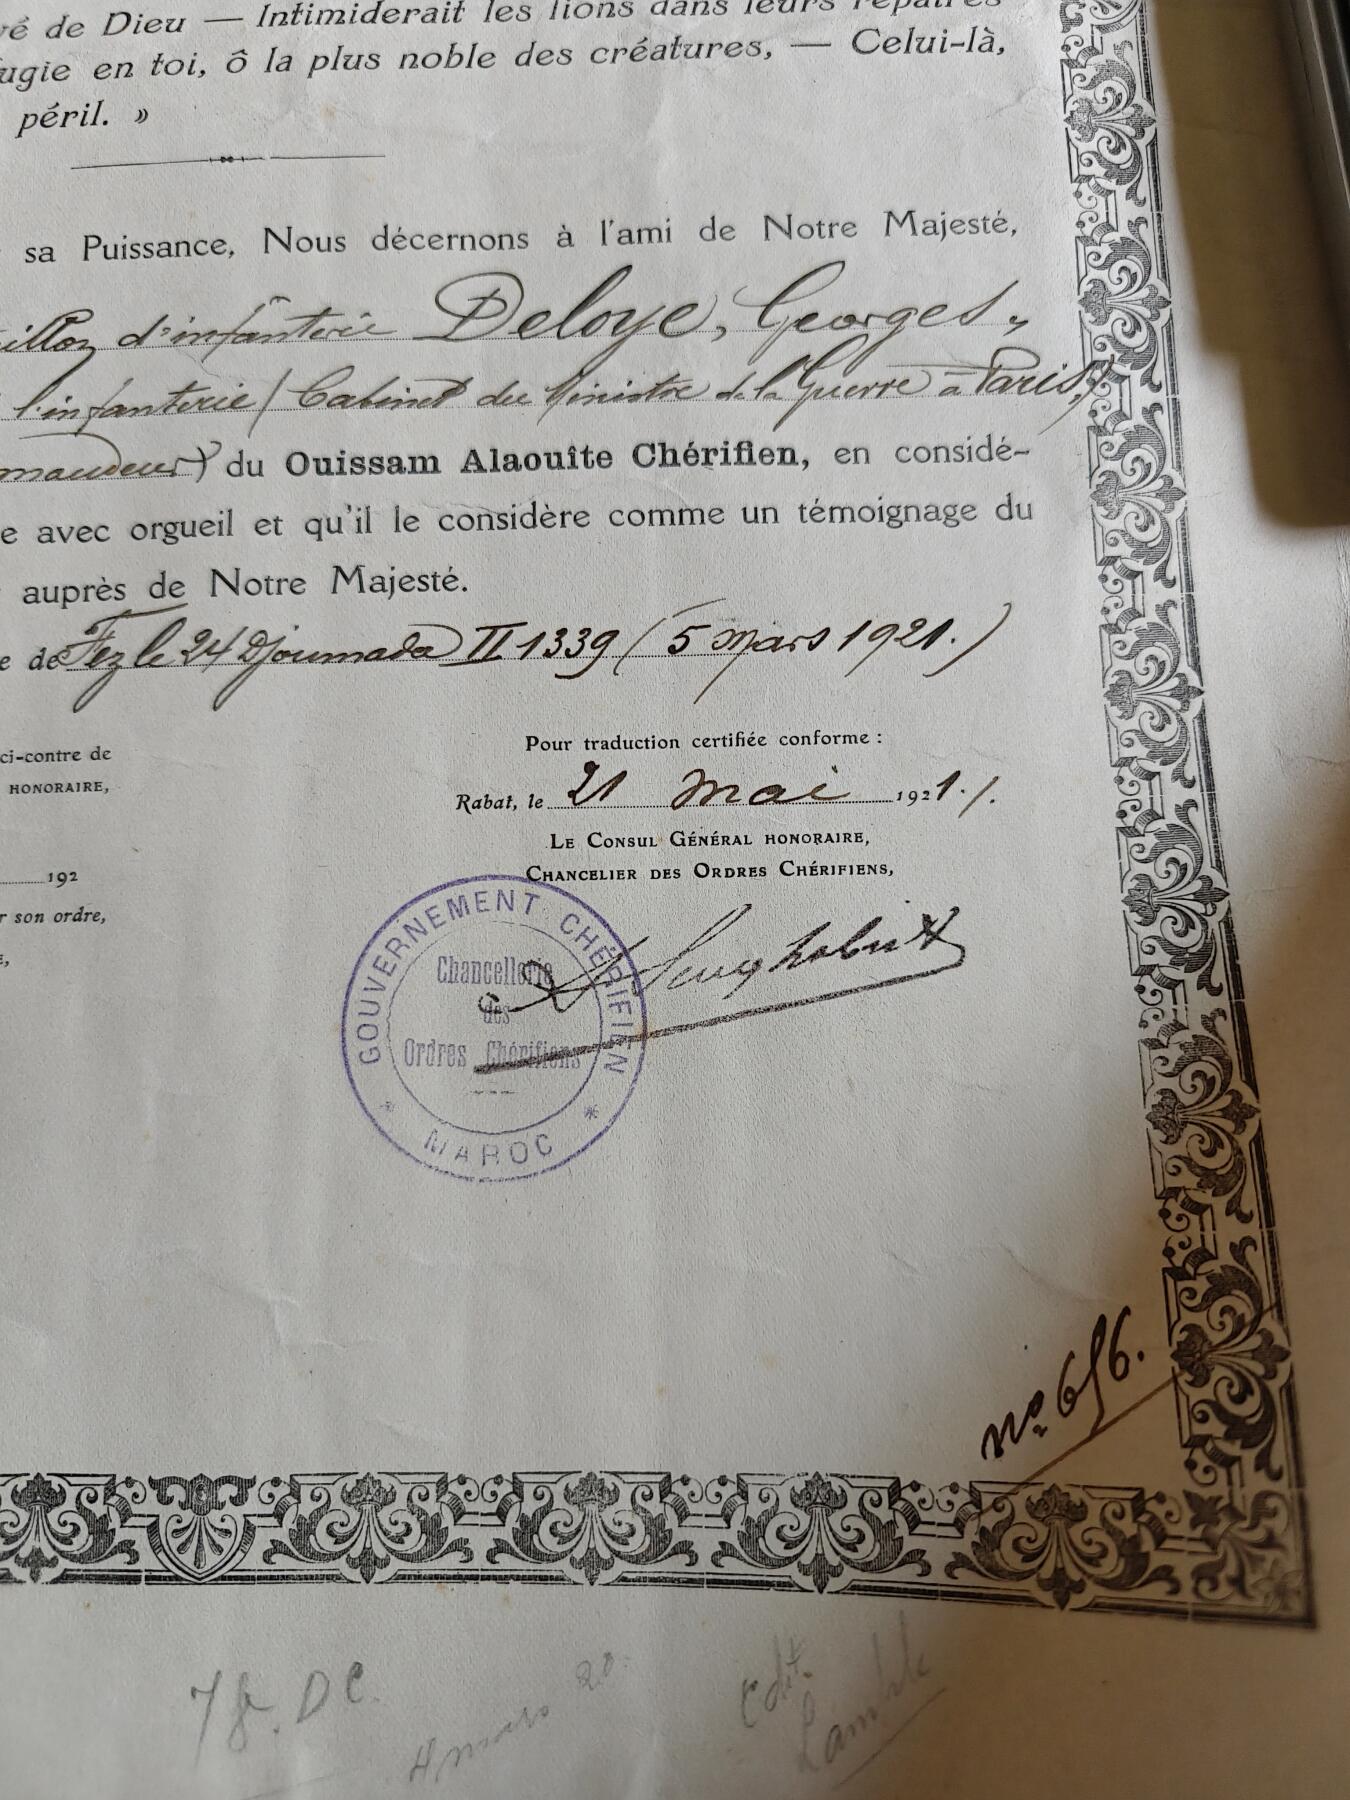 vé de Dieu — Intimiderait les lions dans leurs repaires
ugie en toi, ô la plus noble des créatures, — Celui-là,
péril. »
sa Puissance, Nous décernons à l'ami de Notre Majesté,
aillon d'infanterie Deloye, Georges,
l'infanterie (Cabinet du Ministre de la Guerre à Paris,)
mandeur) du Ouissam Alaouîte Chérifien, en considé-
e avec orgueil et qu'il le considère comme un témoignage du
auprès de Notre Majesté.
e de Fez le 24 Djoumada II 1339 (5 Mars 1921.)
ci-contre de
HONORAIRE,
192
r son ordre,
E,
Pour traduction certifiée conforme :
Rabat, le 21 mai 1921./.
LE CONSUL GÉNÉRAL HONORAIRE,
CHANCELIER DES ORDRES CHÉRIFIENS,
GOUVERNEMENT CHÉRIFIEN
Chancellerie
des
Ordres Chérifiens
* MAROC *
No 656.
4 mars 20.